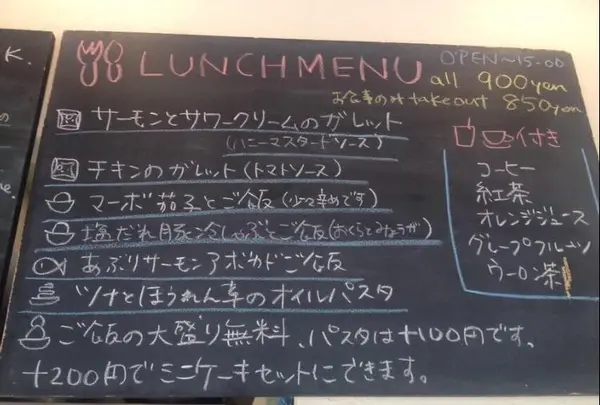 K.
OPEN~15:00
LUNCH MENU
all 900yen
お食事のみ take out 850yen
サーモンとサワークリームのガレット
(ハニーマスタードソース)
チキンのガレット(トマトソース)
マーボ茄子とご飯(少々辛めです)
塩だれ豚冷しゃぶとご飯(おくらとみょうが)
あぶりサーモンアボカドご飯
ツナとほうれん草のオイルパスタ
ご飯の大盛り無料、パスタは+100円です。
+200円でミニケーキセットにできます。
付き
コーヒー
紅茶
オレンジジュース
グレープフルーツ
ウーロン茶